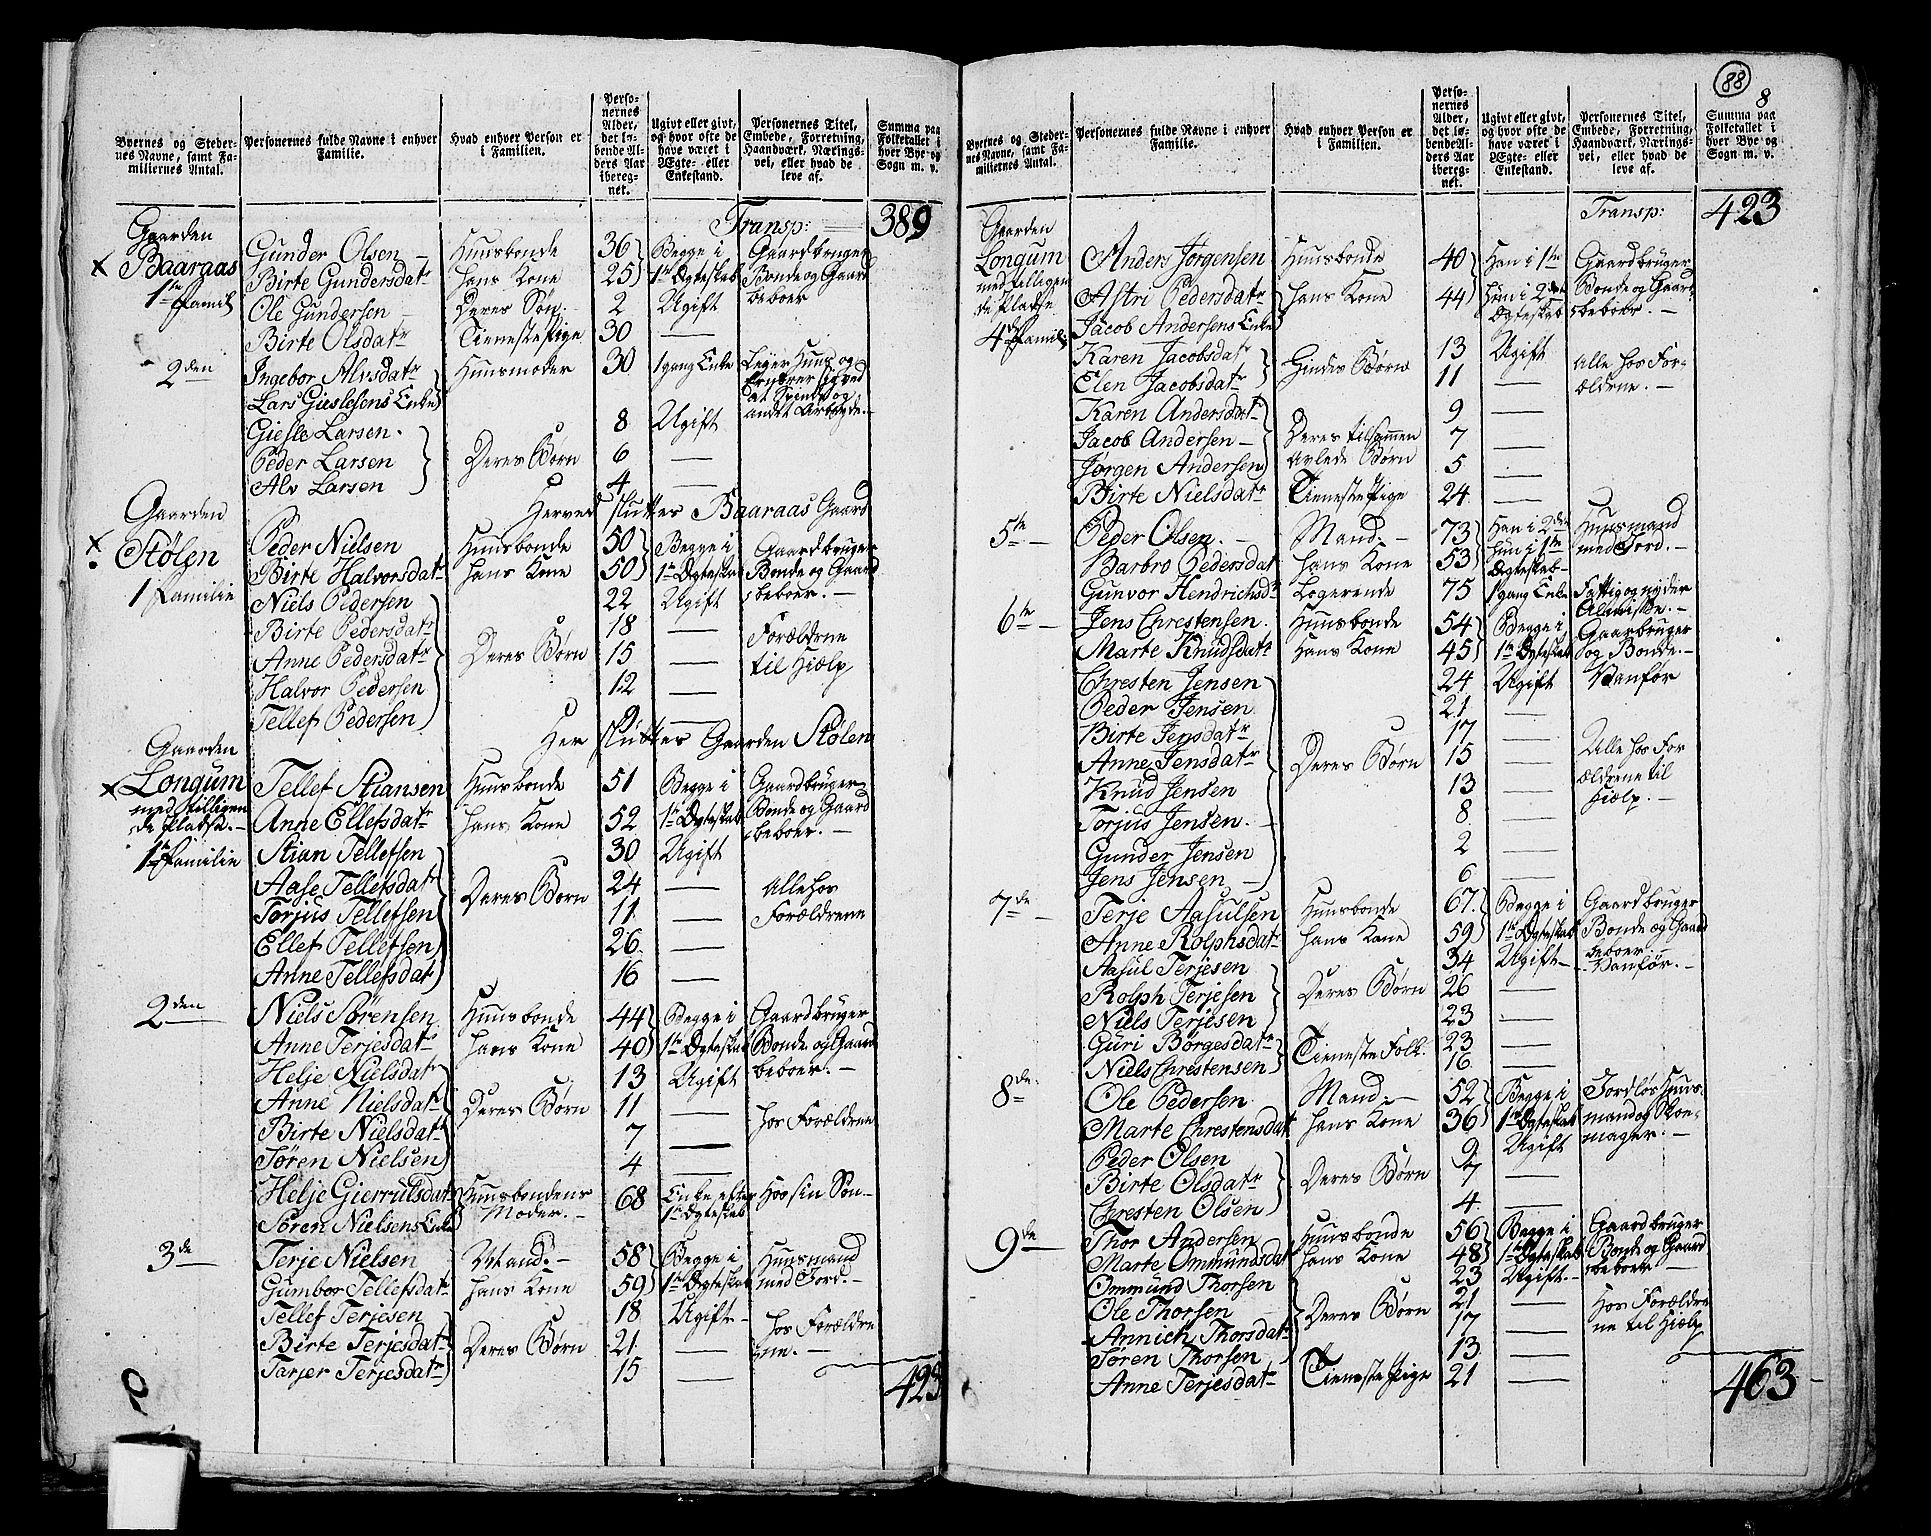 Byernes og Stedernes Navne, samt Familiernes Antal.
Personernes fulde Navne i enhver Familie.
Hvad enhver Person er i Familien.
Personernes Alder, det løbende Alders Aar iberegnet.
Ugivt eller givt, og hvor ofte de have været i Ægte- eller Enkestand.
Personernes Titel, Embede, Forretning, Haandværk, Næringsvei, eller hvad de leve af.
Summa paa Folketallet i hver Bye og Sogn m. v.
Transp: 389
Gaarden
Baaraas
1te Famil
Gunder Olsen – Huusbonde 36 Begge i Gaardbruger
Birte Gundersdatr hans Kone 25 1te Ægteskab Bonde og Gaard
Ole Gundersen Deres Søn 2 Ugift beboer
Birte Olsdatr Tienestepige 30 —
2den Ingebor Alvsdatr Huusmoder 30 1 gang Enke Leyer Huus og
Lars Gieslesens Enke ernærer sig ved
at Spinde og
Giesle Larsen. 8 Ugift andet Arbeyde. –
Peder Larsen Deres Børn 6 —
Alv Larsen 4 —
Herved slutter Baaraas Gaard
Gaarden
Stølen
1 Familie
Peder Nielsen Huusbonde 50 Begge i Gaardbruger
Birte Halvorsdatr hans Kone 50 1te Ægteskab Bonde og Gaard
Niels Pedersen 22 Ugift beboer. –
Birte Pedersdatr 18 — Forældrene
Anne Pedersdatr Deres Børn 15 — til Hiælp
Halvor Pedersen 12 —
Tellef Pedersen 9 —
Her slutter Gaarden Stølen
Gaarden
Longum
med tilligen
de Pladse. –
1te Familie
Tellef Stiansen Huusbonde 51 Begge i Gaardbruger
Anne Ellefsdatr hans Kone 52 1te Ægteskab Bonde og Gaard
Stian Tellefsen 30 Ugift beboer. –
Aase Tellefsdatr Deres Børn 24 — Alle hos
Torjus Tellefsen 11 — Forældrene
Ellef Tellefsen 26 —
Anne Tellefsdat 16 —
2den Niels Sørensen Huusbonde 44 Begge i Gaardbruger
Anne Terjesdatr hans Kone 40 1te Ægteskab Bonde og Gaard
Helje Nielsdatr 13 Ugift beboer. –
Anne Nielsdatr Deres Børn 11 — hos Forældrene
Birte Nielsdatr 7 —
Søren Nielsen 4 —
Helje Gierrulsdatr Huusbondens 68 Enke efter Hos sin Søn –
Søren Nielsens Enke Moder. – 1te Ægteskab
3de Terje Nielsen Mand. – 58 Begge i Huusmand
Gumbor Tellefsdatr hans Kone 59 1te Ægteskab med Jord. –
Tellef Terjesen 18 Ugift –
Birte Terjesdatr Deres Børn 21 — hos Forældre
Tarjer Terjesdatr 15 — ne. –
423
88
8
Byernes og Stedernes Navne, samt Familiernes Antal.
Personernes fulde Navne i enhver Familie.
Hvad enhver Person er i Familien.
Personernes Alder, det løbende Alders Aar iberegnet.
Ugivt eller givt, og hvor ofte de have været i Ægte- eller Enkestand.
Personernes Titel, Embede, Forretning, Haandværk, Næringsvei, eller hvad de leve af.
Summa paa Folketallet i hver Bye og Sogn m. v.
Transp: 423
Gaarden
Longum
med tillagen
de Pladse
4de Famil
Anders Jørgensen Huusbonde 40 Han i 1te Gaardbruger
Astri Pedersdatr hans Kone 44 hun i 2den Bonde og Gaard
Jacob Andersens Enke Ægteskab beboer. –
Karen Jacobsdatr Hindes Børn 13 Ugift Alle hos For-
Elen Jacobsdatr 11 — ældrene. –
Karen Andersdatr 9 —
Jacob Andersen – Deres tilsammen 7 —
Jørgen Andersen avlede Børn 5 —
Birte Nielsdatr Tienestepige 24 —
5te Peder Olsen. – Mand. – 73 Han i 2den Huusmand
Barbro Pedersdat hans Kone 53 hun i 1te med Jord. –
Ægteskab
Gunvor Hendrichsdr Logerende 75 1 gang Enke Fattig og nyder
Almisse. –
6te Jens Chrestensen. Huusbonde 54 Begge i Gaarbruger
Marte Knudsdatr hans Kone 45 1te Ægteskab og Bonde. –
Chresten Jensen 24 Ugift Vanfør
Peder Jensen 21 —
Birte Jensdatr 17 —
Anne Jensdatr Deres Børn 15 — Alle hos For
Knud Jensen 13 — ældrene til
Torjus Jensen. 8 — Hielp. –
Gunder Jensen 2 —
Jens Jensen – 6 —
7de Terje Aasulsen Huusbonde 67 Begge i Gaardbruger
Anne Rolphsdatr hans Kone 59 1te Ægteskab Bonde og Gaard
beboer
Aasul Terjesen 34 Ugift – Vanfør. –
Rolph Terjesen Deres Børn 26 —
Niels Terjesen 23 —
Guri Børgesdatr Tieneste Folk 23 —
Niels Chrestensen 16 —
8de Ole Pedersen Mand. – 52 Begge i Jordløs Huus-
Marte Chrestensdat hans Kone 36 1te Ægteskab mand og Skoe-
Peder Olsen 9 Ugift mager. –
Birte Olsdatr Deres Børn 7 —
Chresten Olsen 4 —
9de Thor Andersen Huusbonde 56 Begge i Gaardbruger
Marte Ommundsdat hans Kone 48 1te Ægteskab Bonde og Gaard
Ommund Thorsen 23 Ugift. – beboer –
Ole Thorsen Deres Børn 21 — Hos Forældre
Annich Thorsdatr 17 — ne til Hiælp
Søren Thorsen 13 —
Anne Terjesdatr Tieneste Pige 21 —
463